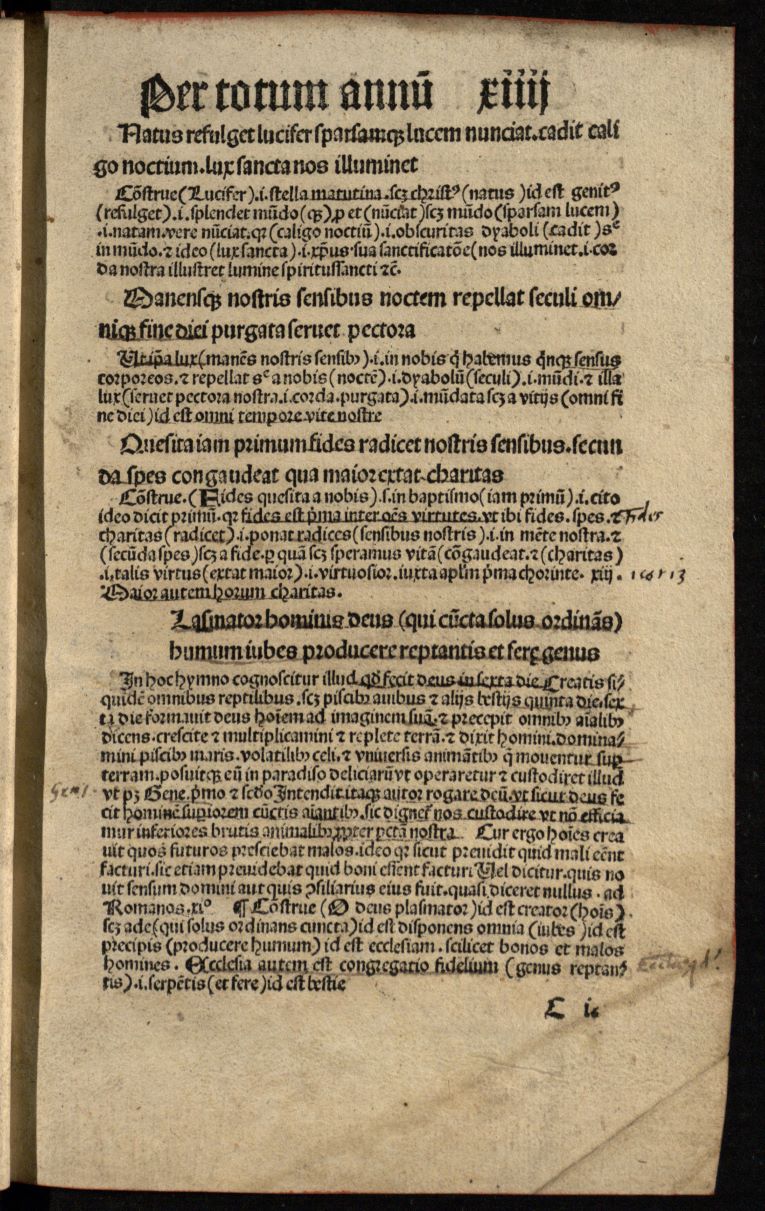 Per totum annū xiiij
Natus refulget lucifer sparsamqȝ lucem nunciat. cadit cali
go noctium. lux sancta nos illuminet
Cōstrue (Lucifer) .i. stella matutina. scȝ christꝰ (natus) id est genitꝰ
(refulget) .i. splendet mūdo (qȝ) ꝓ et (nūciat) scȝ mūdo (sparsam lucem)
.i. natam. vere nūciat. qꝛ (caligo noctiū) .i. obscuritas dyaboli (cadit) sᶜ
in mūdo. ⁊ ideo (lux sancta) .i. xp̄us sua sanctificatōe (nos illuminet .i. coꝛ
da nostra illustret lumine spiritussancti ⁊c̄.
Manensqȝ nostris sensibus noctem repellat seculi om/
niqȝ fine diei purgata seruet pectora
Ut ip̄a lux (manēs nostris sensibꝰ) .i. in nobis q̄ habemus q̄nqȝ sensus
corporeos. ⁊ repellat sᶜ a nobis (noctē) .i. dyabolū (seculi) .i. mūdi. ⁊ illa
lux (seruet pectora nostra .i. corda. purgata) .i. mūdata scȝ a vitijs (omni fi
ne diei) id est omni tempore vite nostre
Quesita iam primum fides radicet nostris sensibus. secun
da spes congaudeat qua maior extat charitas
Cōstrue. (Fides quesita a nobis) .s. in baptismo (iam primū) .i. cito
ideo dicit primū. qꝛ fides est p̄ma inter oēs virtutes. vt ibi fides. spes. ⁊ fides
charitas (radicet) .i. ponat radices (sensibus nostris) .i. in mēte nostra. ⁊
(secūda spes) scȝ a fide. ꝑ quā scȝ speramus vitā (cōgaudeat. ⁊ (charitas)
.i. talis virtus (extat maior) .i. virtuosior. iuxta aplm̄ p̄ma chorinte. xiij. 1 cor 13
Maior autem horum charitas.
Lasmator hominis deus (qui cūcta solus ordināns)
humum iubes producere reptantis et fere genus
In hoc hymno cognoscitur illud qd̄ fecit deus in sexta die. Creatis si/
quidē omnibus reptilibus. scȝ piscibꝰ auibus ⁊ alijs bestijs quinta die. sex
ta die formauit deus hoīem ad imaginem suā. ⁊ precepit omnibꝰ aīalibꝰ
dicens. crescite ⁊ multiplicamini ⁊ replete terrā. ⁊ dixit homini. domina/
mini piscibꝰ maris. volatilibꝰ celi. ⁊ vniuersis animātibꝰ q̄ mouentur suꝑ
terram. posuitqȝ eū in paradiso deliciarū vt operaretur ⁊ custodiret illud
Gen 1. vt pȝ Gene. p̄mo ⁊ scd̄o Intendit itaqȝ autor rogare deū. vt sicut deus fe
cit hominē suꝑiorem cūctis aīantibꝰ. sic dignet̄ nos custodire vt nō efficia
mur inferiores brutis animalibꝰ ꝓpter pctā nostra. Cur ergo hoīes crea
uit quos futuros presciebat malos. ideo qꝛ sicut preuidit quid mali eēnt
facturi. sic etiam preuidebat quid boni essent facturi Uel dicitur. quis no
uit sensum domini aut quis ↄsiliarius eius fuit. quasi diceret nullus. ad
Romanos. xiº ¶ Cōstrue (O deus plasmator) id est creator (hoīs)
scȝ ade (qui solus ordinans cuncta) id est disponens omnia (iubes) id est
precipis (producere humum) id est ecclesiam. scilicet bonos et malos
homines. Ecclesia autem est congregatio fidelium (genus reptan/
tis) .i. serpētis (et fere) id est bestie
C ij